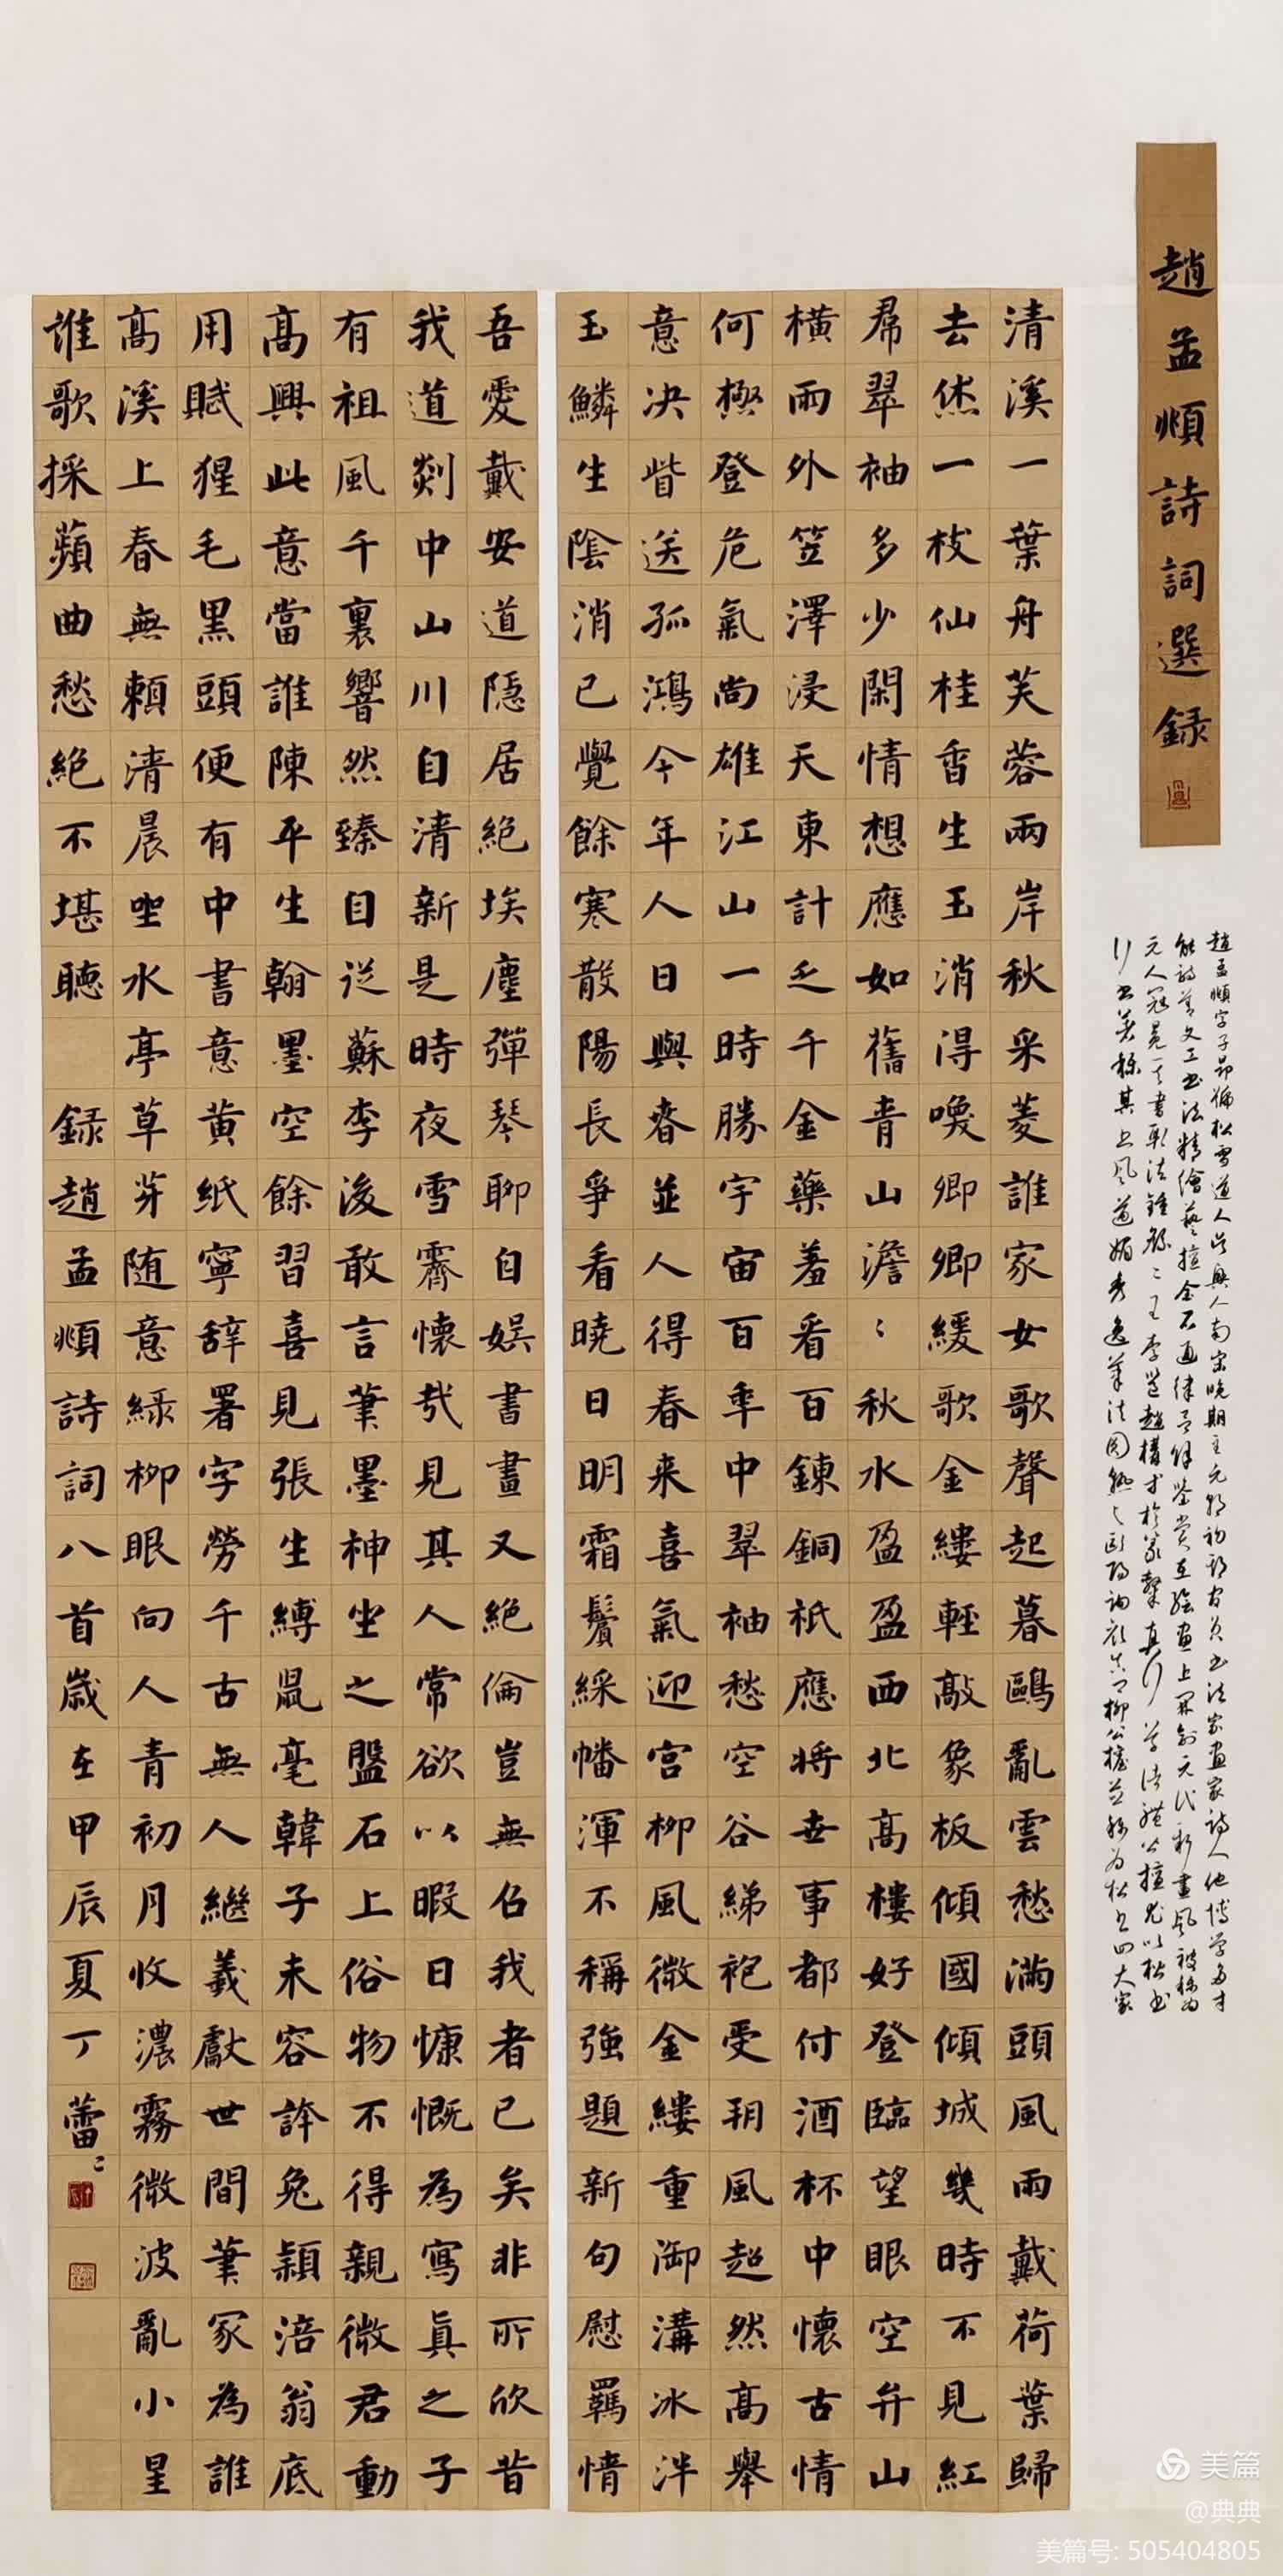 趙孟頫詩詞選録
清溪一葉舟芙蓉兩岸秋采菱誰家女歌聲起暮鷗亂雲愁滿頭風雨戴荷葉歸
去休一枝仙桂香生玉消得喚卿卿緩歌金縷輕敲象板傾國傾城幾時不見紅
帬翠袖多少閑情想應如舊青山澹〻秋水盈盈西北高樓好登臨望眼空弁山
橫雨外笠澤浸天東計乏千金藥羞看百鍊銅祇應將世事都付酒杯中懷古情
何極登危氣尚雄江山一時勝宇宙百年中翠袖愁空谷綈袍受朔風超然高舉
意决眥送孤鴻今年人日與春並人得春来喜氣迎宮柳風微金縷重御溝冰泮
玉鱗生陰消已覺餘寒散陽長爭看曉日明霜鬢綵幡渾不稱強題新句慰羈情
吾愛戴安道隱居絕埃塵彈琴聊自娛書畫又絕倫豈無召我者已矣非所欣昔
我道剡中山川自清新是時夜雪霽懷哉見其人常欲以暇日慷慨為寫真之子
有祖風千裏響然臻自從蘇李後敢言筆墨神坐之盤石上俗物不得親微君動
高興此意當誰陳平生翰墨空餘習喜見張生縛鼠毫韓子未容誇兔穎涪翁底
用賦猩毛黑頭便有中書意黃紙寧辞署字勞千古無人繼羲獻世間筆冢為誰
高溪上春無賴清晨坐水亭草芽随意綠柳眼向人青初月收濃霧微波亂小星
誰歌採蘋曲愁絕不堪聽 録趙孟頫詩詞八首歲在甲辰夏丁蕾〻
美篇
@典典
美篇号: 505404805